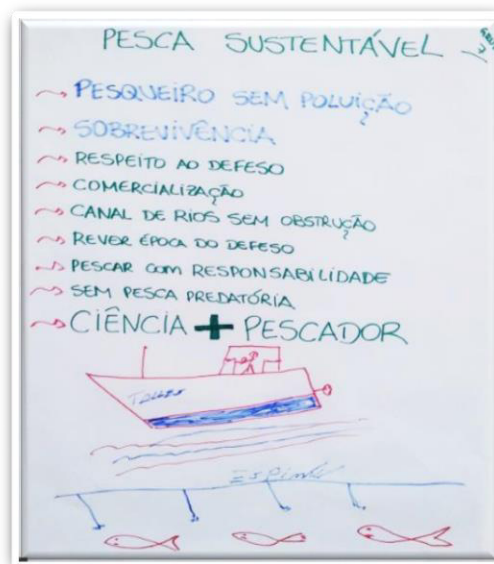 PESCA SUSTENTÁVEL
PESQUEIRO SEM POLUIÇÃO
SOBREVIVÊNCIA
RESPEITO AO DEFESO
COMERCIALIZAÇÃO
CANAL DE RIOS SEM OBSTRUÇÃO
REVER ÉPOCA DO DEFESO
PESCAR COM RESPONSABILIDADE
SEM PESCA PREDATÓRIA
CIÊNCIA + PESCADOR